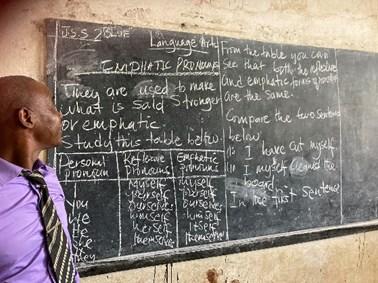 J.S.S. 2 BLUE
Language Arts
EMPHATIC PRONOUNS
They are used to make
what is said stronger
or emphatic.
Study this table below.
Personal pronoun Reflexive pronouns Emphatic pronouns
Myself myself
You
We ourselves ourselves
He himself himself
She herself
It Itself
They themselves themselves
From the table you can
See that both the reflexive
and emphatic forms of
are the same.
Compare the two
below
(i) I have cut myself
(ii) I myself cleaned the
board.
In the first sentence